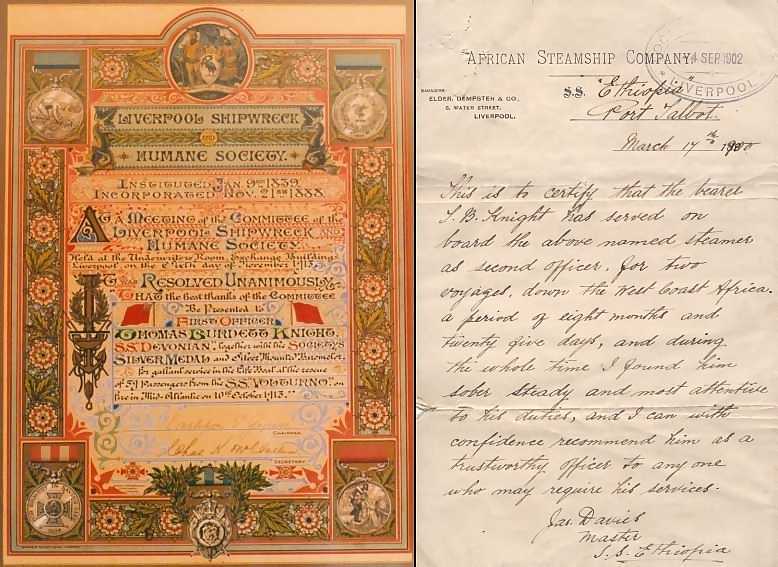 LIVERPOOL SHIPWRECK
AND
HUMANE SOCIETY.
INSTITUTED JAN. 9TH 1839.
INCORPORATED NOV. 21ST 1888.
AT A MEETING of the COMMITTEE of the
LIVERPOOL SHIPWRECK AND
HUMANE SOCIETY
Held at the Underwriters' Room, Exchange Buildings
Liverpool on the day of November 1913.
It was RESOLVED UNANIMOUSLY
THAT the best thanks of the COMMITTEE
Be Presented to
FIRST OFFICER
THOMAS BURDETT KNIGHT,
S.S. DEVONIAN, together with the SOCIETY'S
SILVER MEDAL and Silver Mounted Barometer
for gallant service in the Life Boat at the rescue
of 59 Passengers from the S.S. "VOLTURNO," on
fire in Mid-Atlantic on 10th October 1913.
CHAIRMAN.
SECRETARY.
AFRICAN STEAMSHIP COMPANY.
4 SEP 1902
LIVERPOOL
MANAGERS
ELDER, DEMPSTER & CO.,
WATER STREET,
LIVERPOOL.
S.S. "Ethiopia"
Port Talbot.
March 17th 1900
This is to certify that the bearer
T. B. Knight has served on
board the above named steamer
as second officer, for two
voyages, down the West Coast Africa.
a period of eight months and
twenty five days, and during
the whole time I found him
sober steady and most attentive
to his duties, and I can with
confidence recommend him as a
trustworthy officer to any one
who may require his services.
Jas. Davies
Master
S.S. Ethiopia